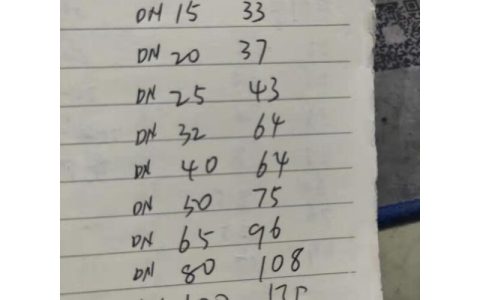 DN 15 33
DN 20 37
DN 25 43
DN 32 64
DN 40 64
DN 50 75
DN 65 96
DN 80 108